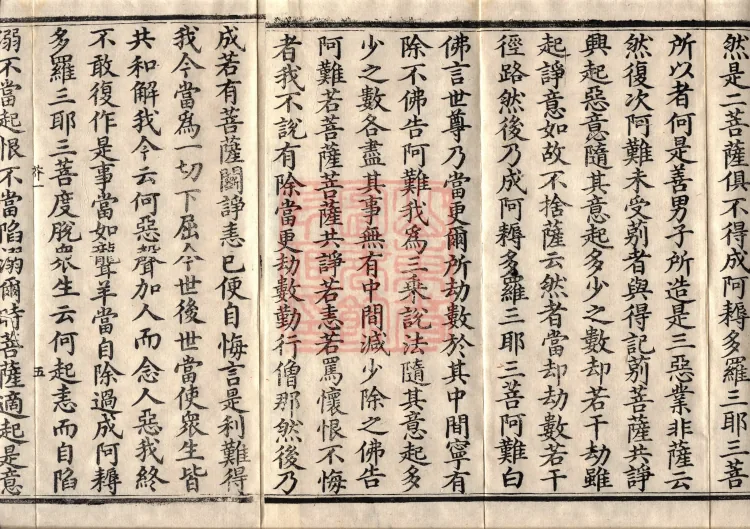 然是二菩薩俱不得成阿耨多羅三耶三菩
所以者何是善男子所造是三惡業非薩云
然復次阿難未受莂者與得記莂菩薩共諍
興起惡意隨其意起多少之數却若干劫雖
起諍意如故不捨薩云然者當却劫數若干
徑路然後乃成阿耨多羅三耶三菩阿難白
佛言世尊乃當更爾所劫數於其中間寧有
除不佛告阿難我為三乘說法隨其意起多
少之數各盡其事無有中間減少除之佛告
阿難若菩薩菩薩共諍若恚若罵懷恨不悔
者我不說有除當更劫數勤行僧那然後乃
成若有菩薩鬪諍恚已便自悔言是利難得
我今當為一切下屈今世後世當使衆生皆
共和解我今云何惡聲加人而念人惡我終
不敢復作是事當如聾羊當自除過成阿耨
多羅三耶三菩度脫衆生云何起恚而自陷
五
溺不當起恨不當陷溺爾時菩薩適起是意